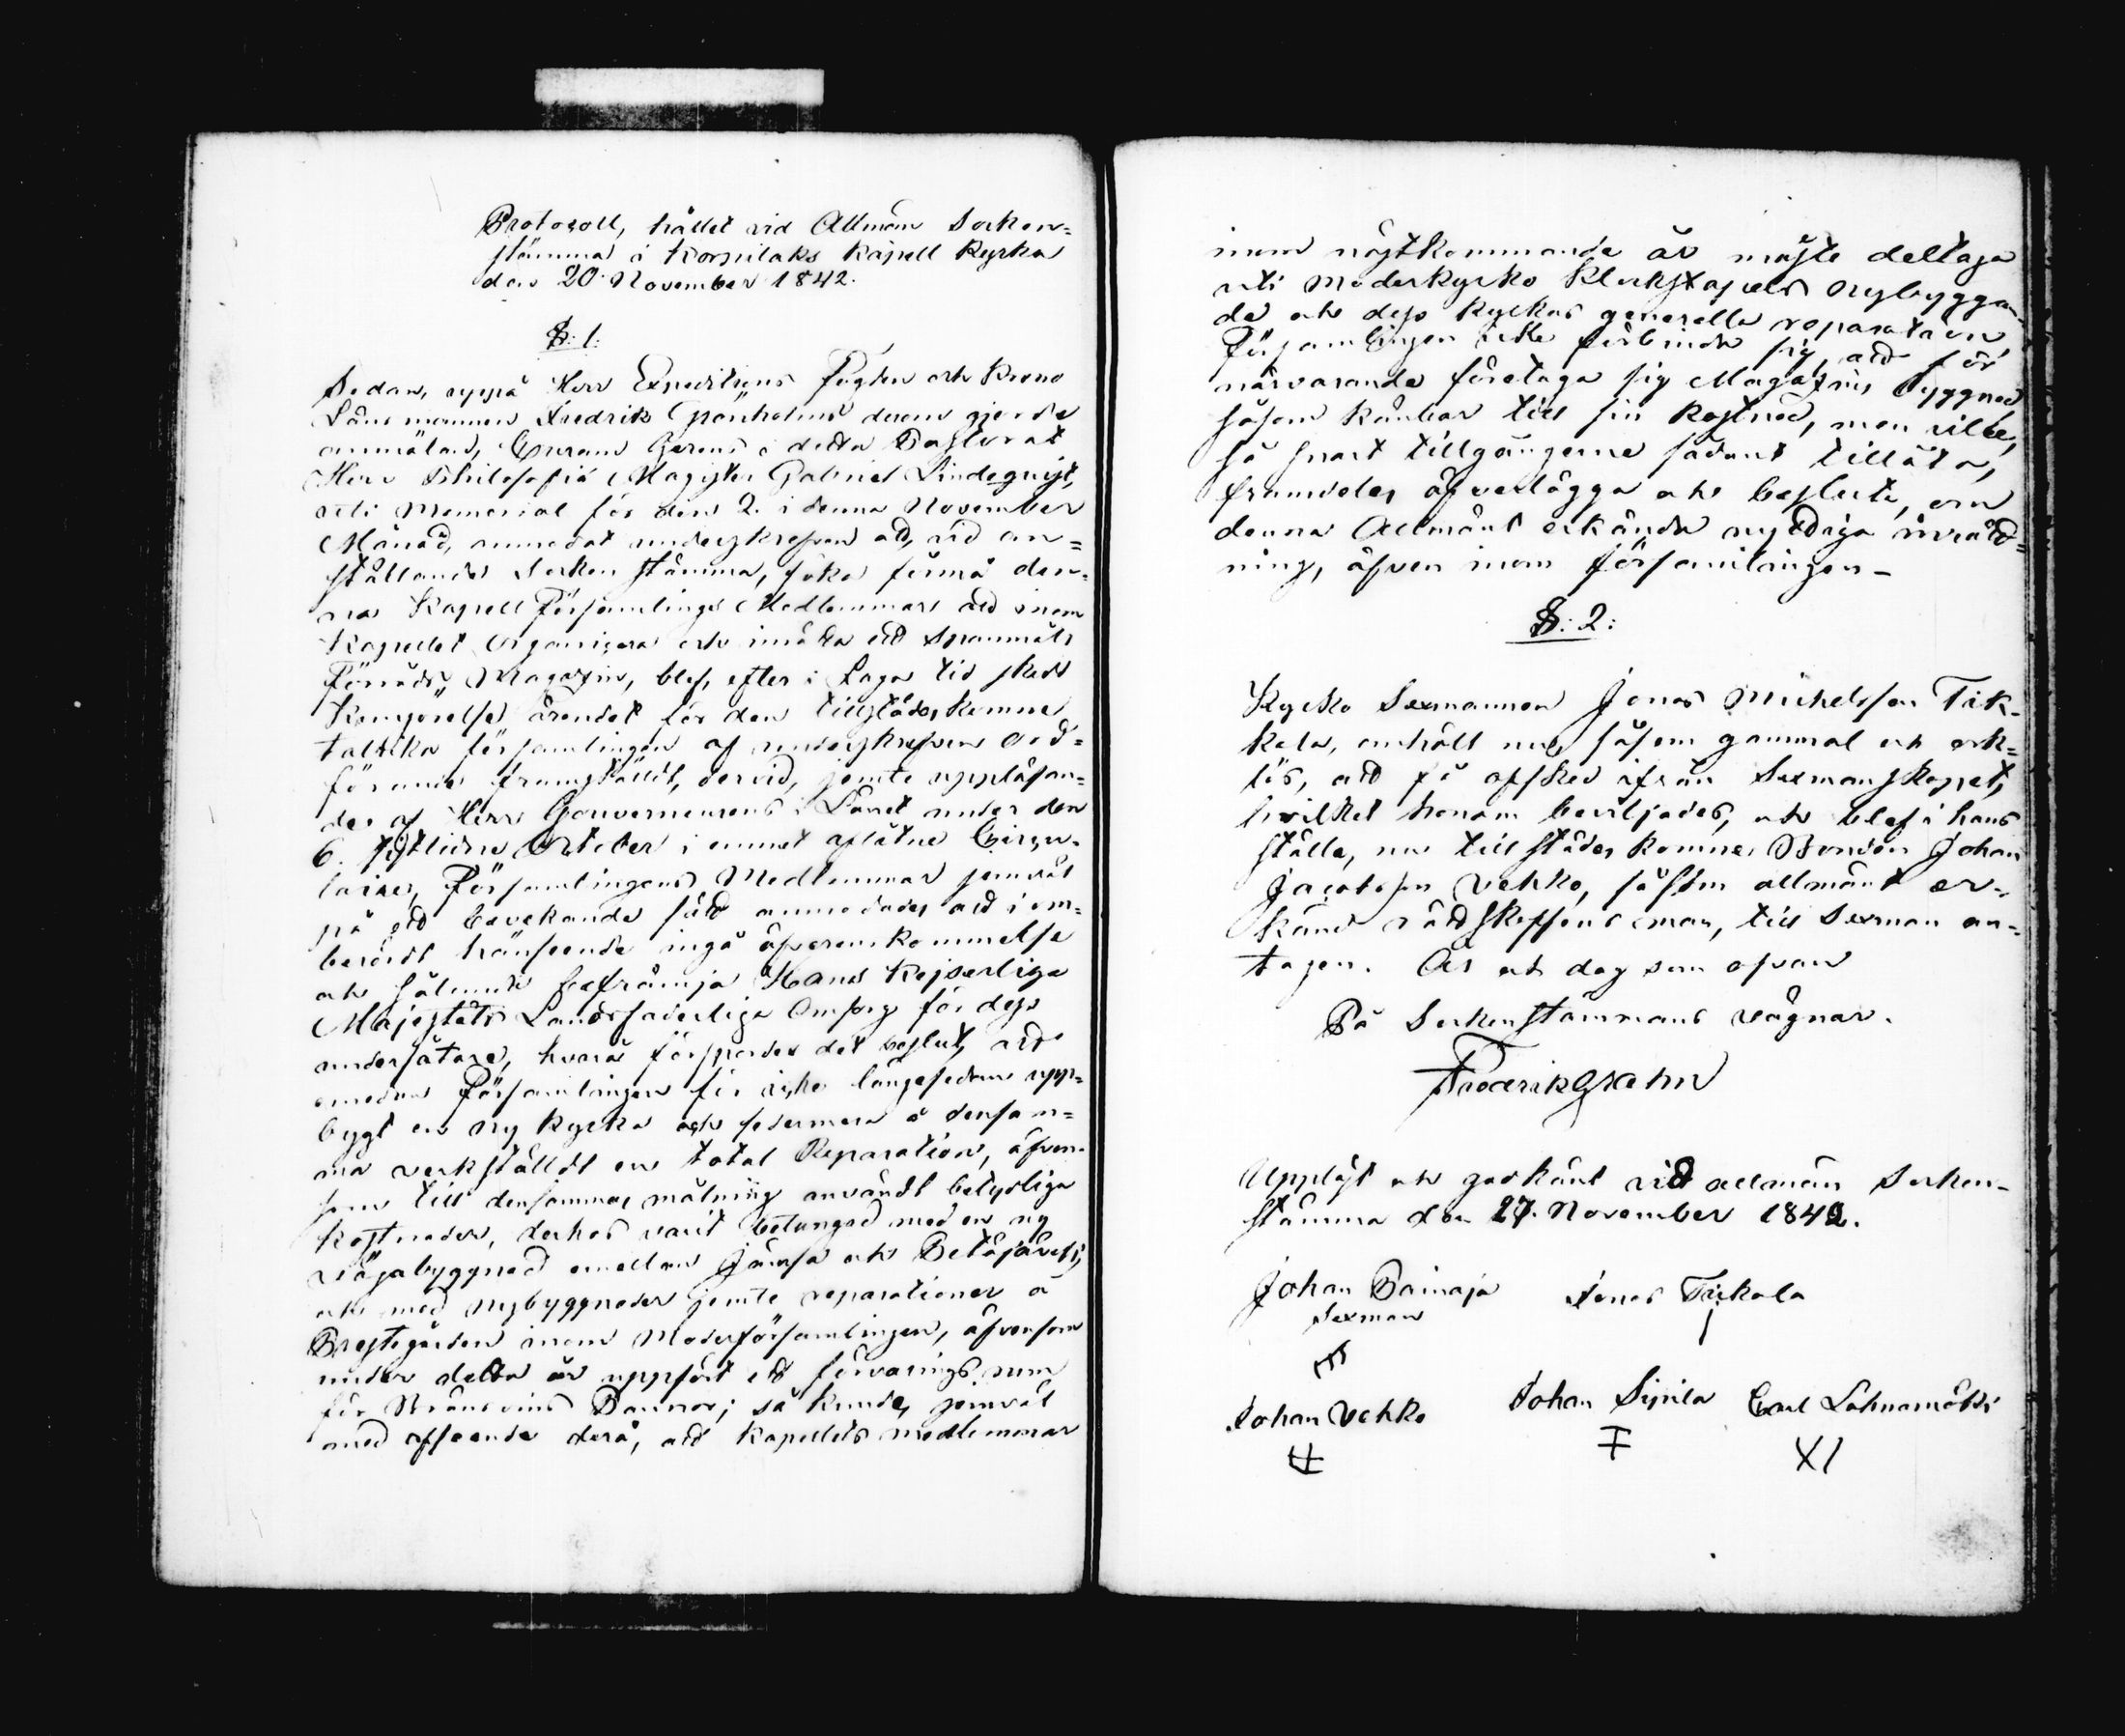 Protocoll, hållet vid Allmän Socken=
stämma i Korpilaks Kapell Kyrka
den 20 November 1842.
§: 1:
Sedan, uppå Herr Expeditions Fogden och Krono
Länsmannen Fredrik Grönholms derom gjorde
anmälan, Curam Gerens i detta Pastorat
Herr Philosofiæ Magister Gabriel Lindeqvist,
uti Memorial för den 2. i denna November
Månad, anmodat undertecknad att, vid an=
ställande Socken stämma, söka förmå den=
na Kapell Församlings Medlemmar att inom
Kapellet organisera och inrätta ett Spannmåls
Förråds Magazin, blef, efter i Laga tid skedd
Kungörelse ärendet för den tillstädes komne
talrika församlingen af undertecknad Ord=
förande framstäldt, dervid, jemte uppläsan=
de af Herr Gouverneurens i Länet under den
6. sistlidne October i ämnet aflåtne Circu=
laire, Församlingens Medlemmar jemväl
på ett bevekande sätt anmodades att i om=
berördt hänseende ingå öfverenskommelse
och sålunda befrämja Hans Kejserliga
Majestäts Landsfaderliga Omsorg för dess
undersåtare, hvarå församlingen det beslut, att
emedan Församlingen för icke längesedan upp=
bygt en ny kyrka och sedermera å densam=
ma verkställdt en total Reparation, äfven
som till densammas målning användt betydliga
kostnader, derhos varit betungad med en ny
vägabyggnad emellan Jämsä och Petäjävesi,
och med nybyggnader jemte reparationer å
Prestegården inom Moderförsamlingen, äfvensom
under detta år uppfört ett förvarings rum
för Brännvins Pannor; så kunde, jemväl
med afseende derå, att Kapellets medlemmar
inom nästkommande år måste deltaga
uti Moderkyrko Klockstapels nybyggan=
de och dess kyrkas generella reparation,
Församlingen icke förbinda sig att för
närvarande företaga sig Magazins byggnad
såsom känbar till sin kostnad, men ville,
så snart tillgångerne sådant tillåta,
framdeles öfverlägga och besluta, om
denna Allmänt erkända nyttiga inrätt=
ning, äfven inom församlingen –
§: 2:
Kyrko Sexmannen Jonas Michelsson Tik=
kala, anhöll nu, såsom gammal och ork=
lös, att få afsked ifrån Sexmanskapet,
hvilket honom beviljades, och blef i hans
ställe, nu tillstädes komne Bonden Johan
Jacobsson Vehko, såsom allmänt er=
känd rättskaffens man, till Sexman an=
tagen. År och dag som ofvan
På Sockenstämmans vägnar.
Uppläst och godkänt vid allmän Socken=
stämma den 27. November 1842.
Johan Painaja Jonas Tikkala
Sexman
Johan Vehko Johan Sipila Carl Lahnamäki